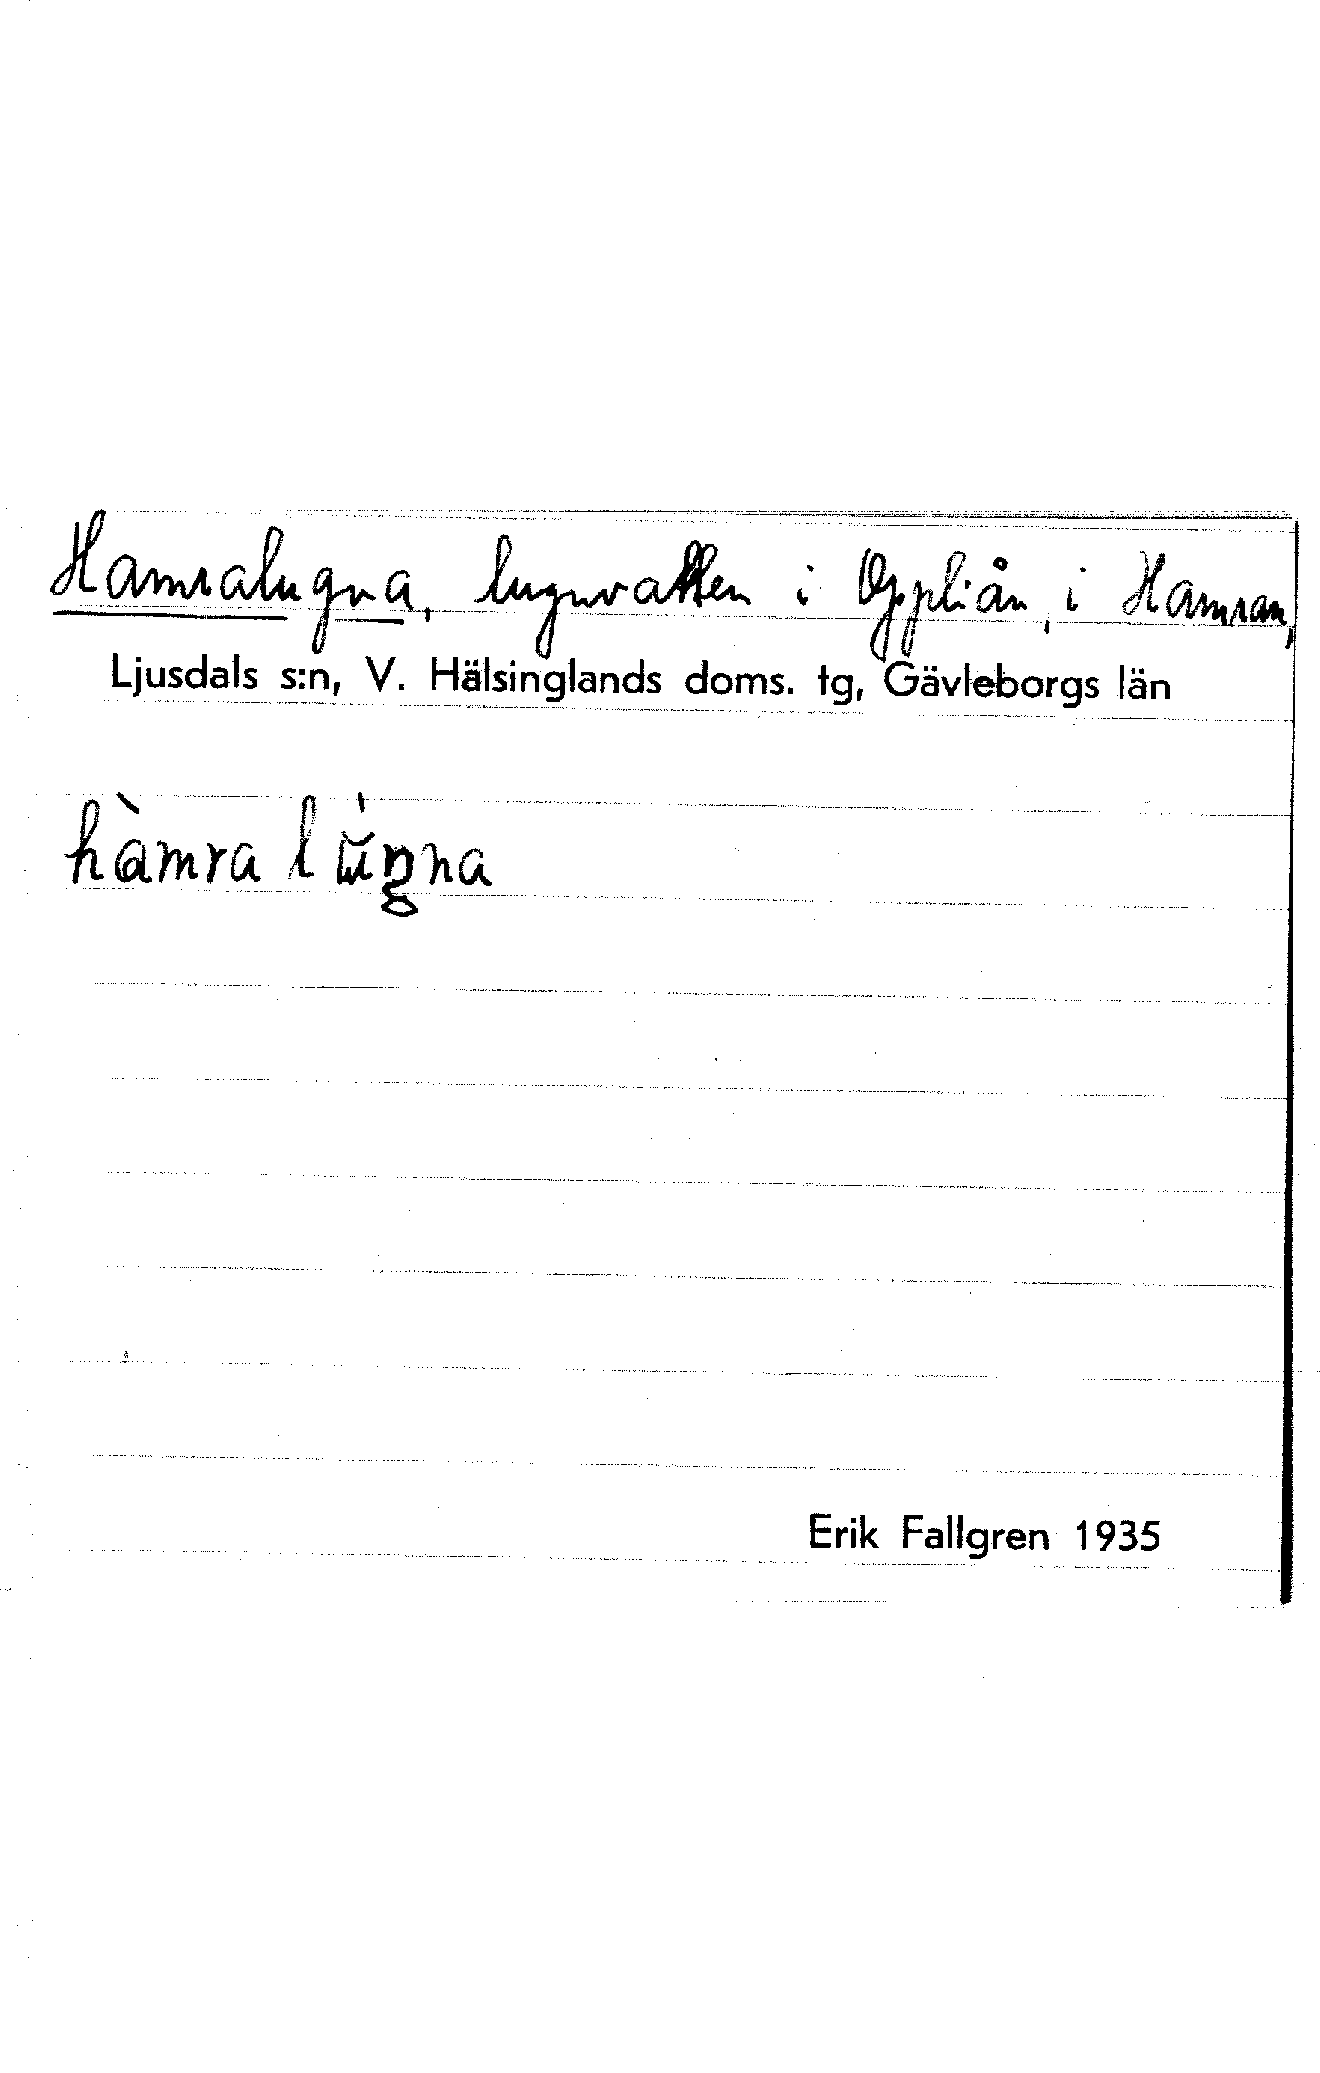 Hamralugna, lugnvatten i Öppliån, i Hamran,
Ljusdals s:n, V. Hälsinglands doms. tg, Gävleborgs län
Erik Fallgren 1935